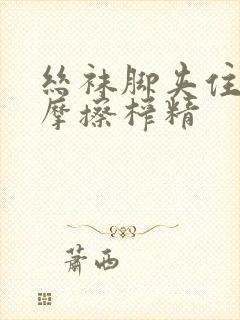 丝袜脚夹住
摩擦榨精
萧西